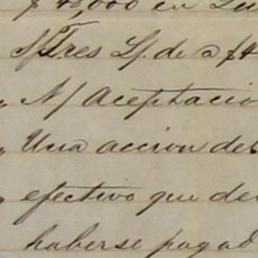 $ 48,000 en Lu
N/ Tres L/. de a $4
" N/ Aceptacio
" Una accion del
" efectivo que de
haberse pagad